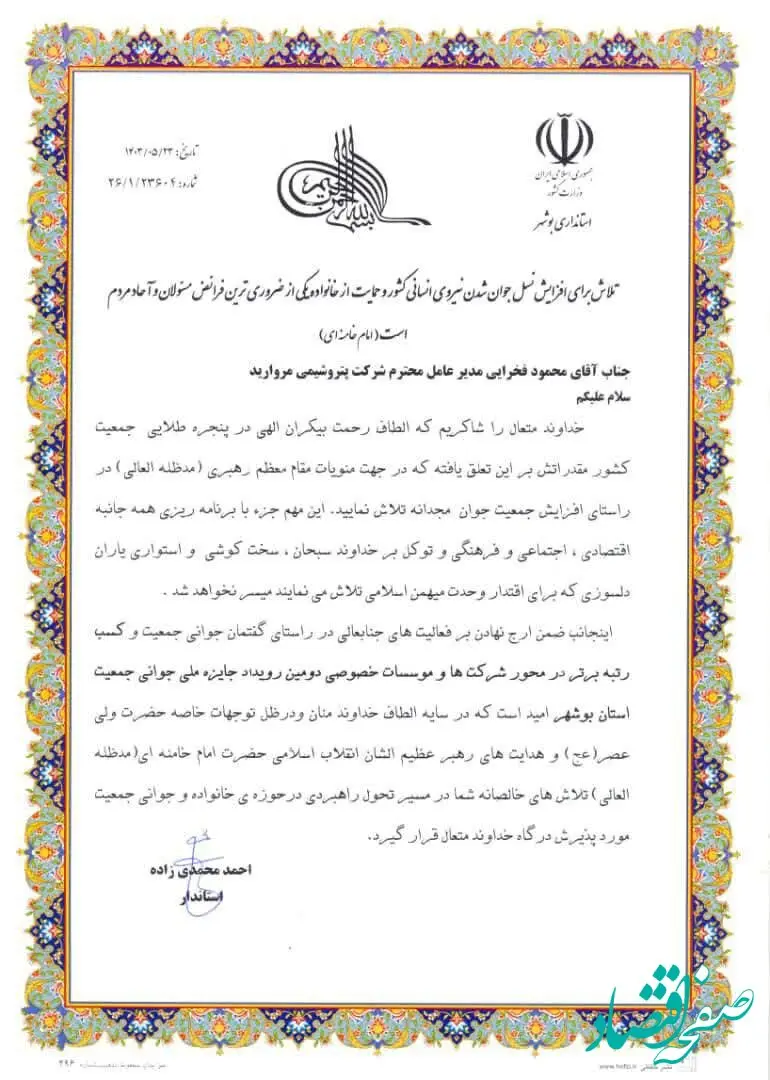 جمهوری اسلامی ایران
وزارت کشور
استانداری بوشهر
بسم الله الرحمن الرحیم
تاریخ: ۱۴۰۳/۰۵/۲۳
شماره: ۲۶/۱/۲۳۶۰۴
تلاش برای افزایش نسل جوان شدن نیروی انسانی کشور و حمایت از خانواده یکی از ضروری ترین فرائض مسئولان و آحاد مردم
است (امام خامنه ای)
جناب آقای محمود فخرایی مدیر عامل محترم شرکت پتروشیمی مروارید
سلام علیکم
خداوند متعال را شاکریم که الطاف رحمت بیکران الهی در پنجره طلایی جمعیت
کشور مقدراتش بر این تعلق یافته که در جهت منویات مقام معظم رهبری (مدظله العالی) در
راستای افزایش جمعیت جوان مجدانه تلاش نمایید. این مهم جزء با برنامه ریزی همه جانبه
اقتصادی ، اجتماعی و فرهنگی و توکل بر خداوند سبحان ، سخت کوشی و استواری یاران
دلسوزی که برای اقتدار وحدت میهمن اسلامی تلاش می نمایند میسر نخواهد شد .
اینجانب ضمن ارج نهادن بر فعالیت های جنابعالی در راستای گفتمان جوانی جمعیت و کسب
رتبه برتر در محور شرکت ها و موسسات خصوصی دومین رویداد جایزه ملی جوانی جمعیت
استان بوشهر امید است که در سایه الطاف خداوند منان ودرظل توجهات خاصه حضرت ولی
عصر(عج) و هدایت های رهبر عظیم الشان انقلاب اسلامی حضرت امام خامنه ای(مدظله
العالی) تلاش های خالصانه شما در مسیر تحول راهبردی درحوزه ی خانواده و جوانی جمعیت
مورد پذیرش درگاه خداوند متعال قرار گیرد.
احمد محمدی زاده
استاندار
صفحه اقتصاد
۲۹۶